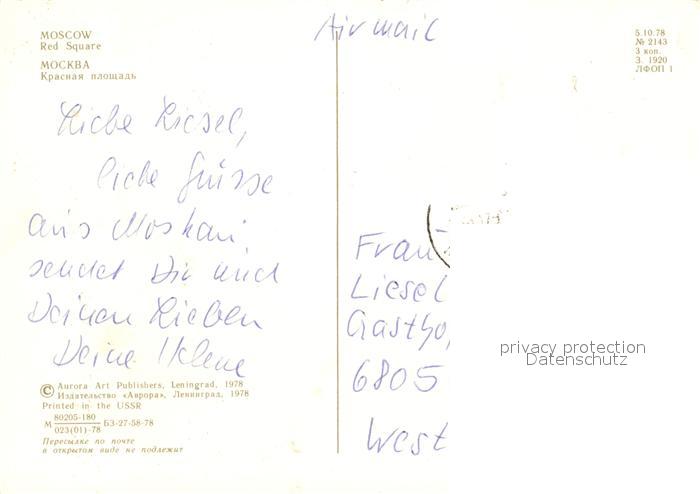 MOSCOW
Red Square
МОСКВА
Красная площадь
Liebe Liesel,
liebe Grüsse
aus Moskau
sendet Dir und
Deinen Lieben
Deine Helene
© Aurora Art Publishers, Leningrad, 1978
Издательство «Аврора», Ленинград, 1978
Printed in the USSR
М 80205-180 БЗ-27-58-78
023(01)-78
Пересылке по почте
в открытом виде не подлежит
Airmail
5.10.78
№ 2143
3 коп.
З. 1920
ЛФОП 1
Frau
Liesel
Gastho
6805
West
privacy protection
Datenschutz